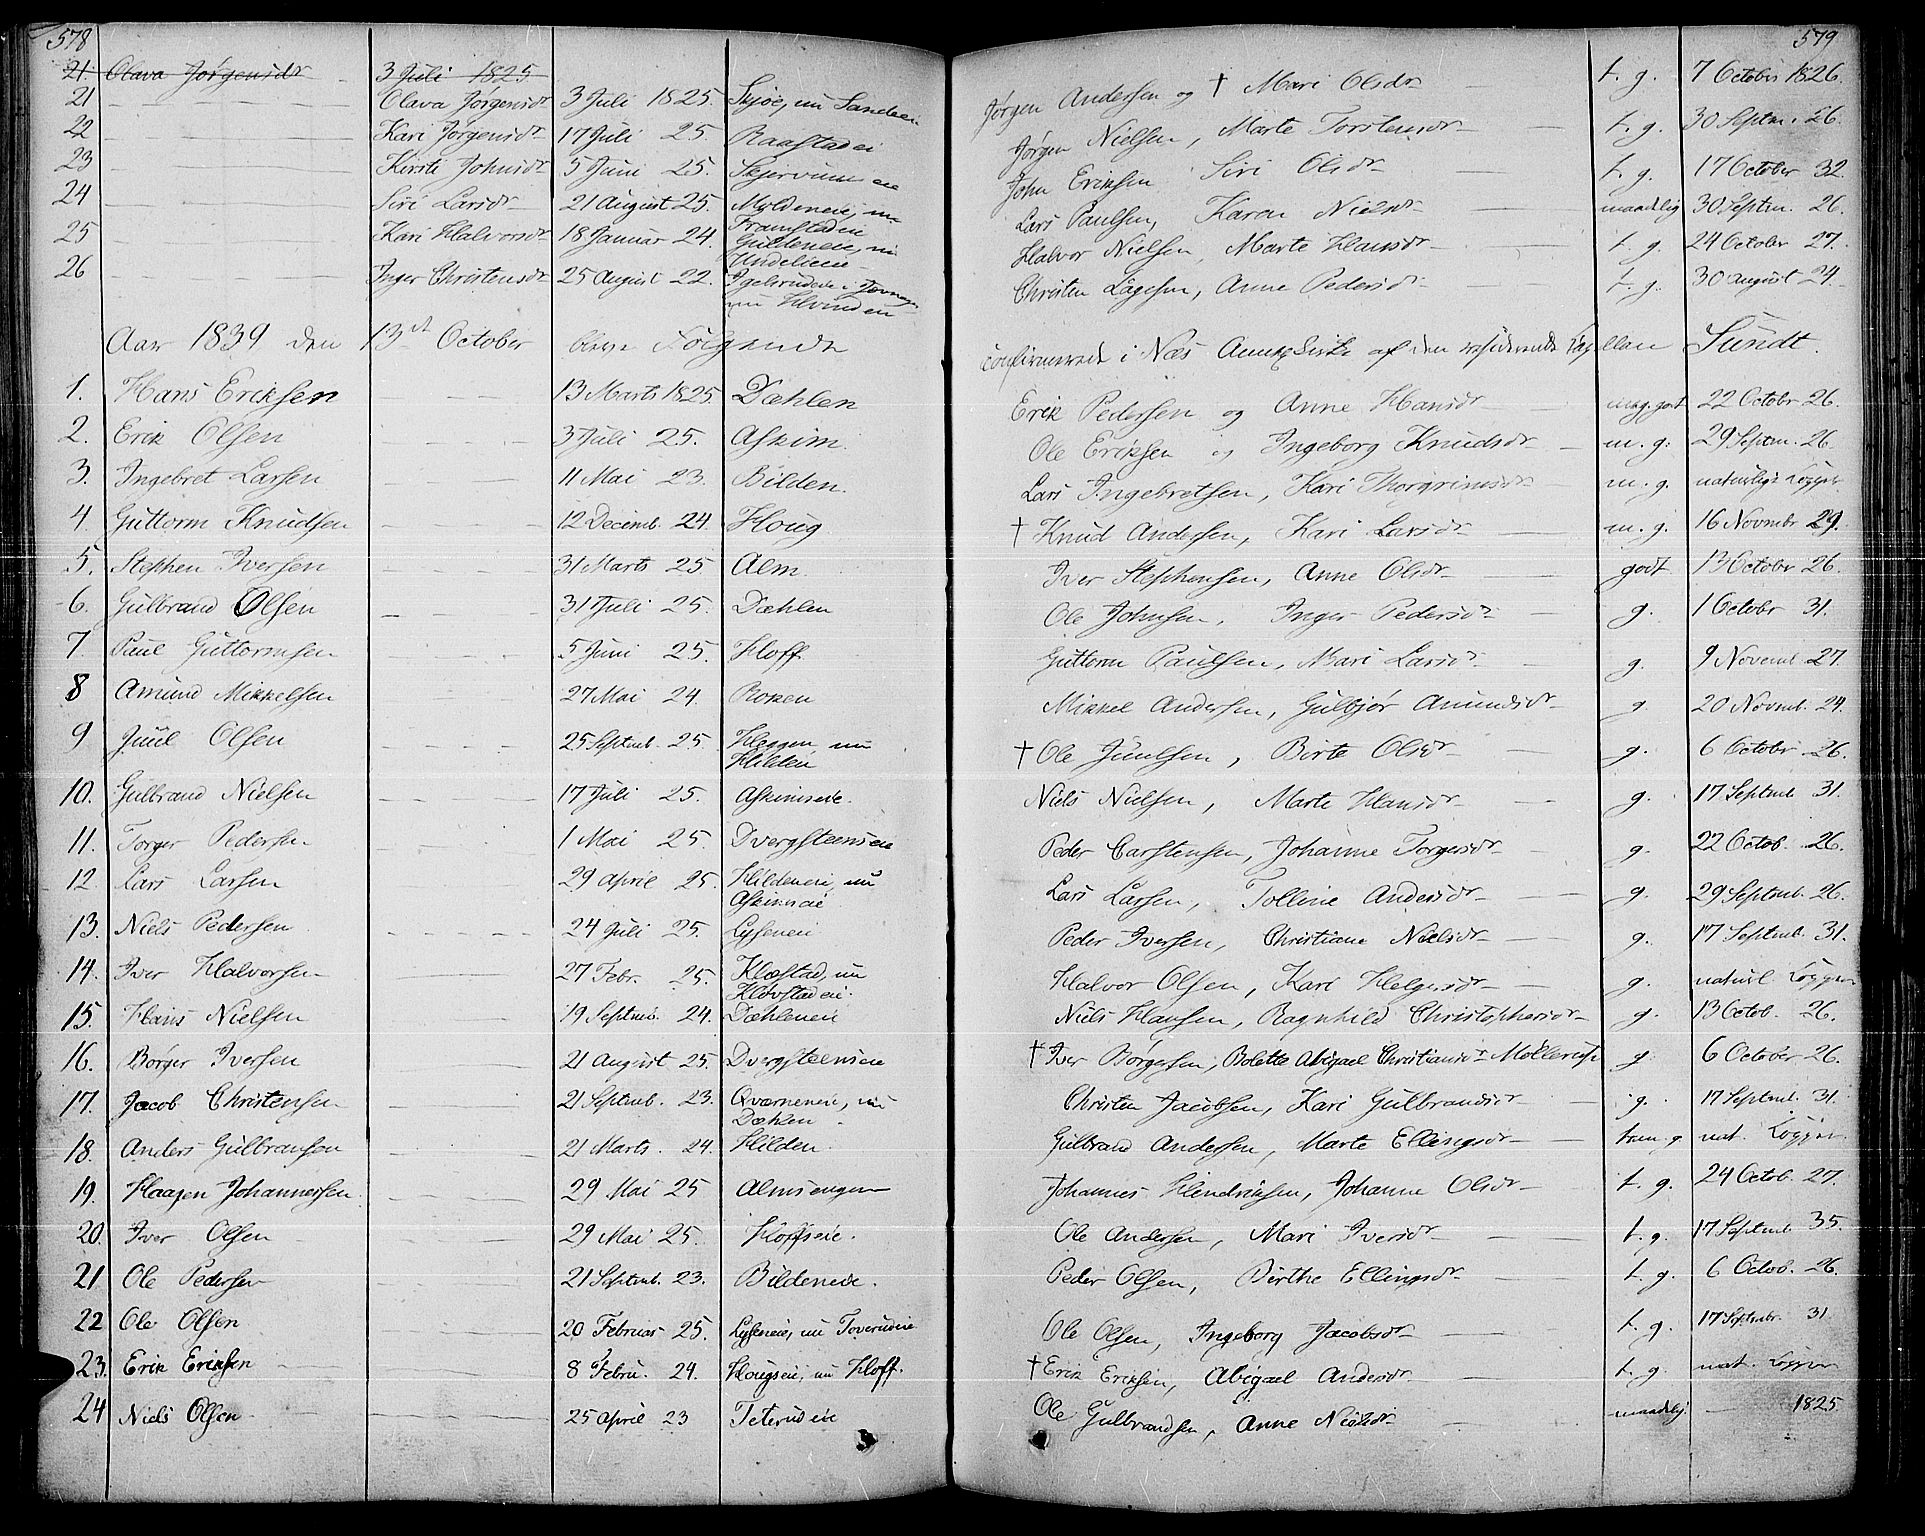 578
21. Olava Jørgensdr 3 Juli 1825
21 Olava Jørgensdr 3 Juli 1825. Skjøe, nu Sandeneie
22 Kari Jørgensdr 17 Juli 25. Raastadei
23 Kirsti Johnsdr 5 Juni 25. Skjervumeie
24 Siri Larsdr 21 August 25. Myldeneie, nu
Framstadeie
25 Kari Halvorsdr 18 Januar 24. Guldeneie, nu
Undelieie
26 Inger Christensdr 25 August 22. Igelsrudeie i Jevnager
nu Hvindeneie
Aar 1839 den 13de October bleve Følgende
1. Hans Eriksen 13 Marts 1825. Dæhlen
2. Erik Olsen 3 Juli 25. Askim.
3. Ingebret Larsen 11 Mai 23. Bilden.
4. Guttorm Knudsen 12 Decemb. 24. Houg
5. Stephen Iversen 31 Marts 25 Alm.
6. Gulbrand Olsen 31 Juli 25. Dæhlen
7 Paul Guttormsen 5 Juni 25. Hoff
8 Amund Mikkelsen 27 Mai 24. Roken
9 Juul Olsen 25 Septemb. 25. Heggen, nu
Hilden
10. Gulbrand Nielsen 17 Juli 25. Askimseie.
11. Torger Pedersen 1 Mai 25. Dvergsteenseie
12. Lars Larsen 29 April 25. Hildeneie, nu
Askimseie
13. Niels Pedersen 24 Juli 25. Lyseneie
14. Iver Halvorsen 27 Febr. 25. Klæstad, nu
Kløvstadeie.
15. Hans Nielsen 19 Septemb. 24. Dæhleneie
16. Børger Iversen 21 August 25. Dvergsteenseie
17. Jacob Christensen 21 Septemb. 23. Qværneneie, nu
Dæhlen
18. Anders Gulbransen 21 Marts. 24. Hilden
19. Haagen Johannessen 29 Mai 25 Almsengen
20. Iver Olsen 29 Mai 25. Hoffseie.
21 Ole Pedersen 21 Septemb. 23. Bildeneie.
22 Ole Olsen 20 Februar 25. Lyseneie, nu Toverudeie
23. Erik Eriksen 8 Febru. 24. Hougseie, nu Hoff.
24 Niels Olsen 25 April 23 Teterudeie
579
Jørgen Andersen og † Mari Olsdr t. g. 7 October 1826.
Jørgen Nielsen, Marte Torstensdr t. g. 30 Septm. 26.
John Eriksen Siri Olsdr t. g. 17 October 32.
Lars Paulsen, Karen Nielsdr maadelig 30 Septm. 26.
Halvor Nielsen, Marte Hansdr t. g. 24 October 27.
Christen Lagesen, Anne Pedersdr t. g. 30 August 24.
confirmerede i Næs Annex Kirke af den residerende Capellan Sundt.
Erik Pedersen og Anne Hansdr meg. godt 22 Octobr 26.
Ole Eriksen og Ingeborg Knudsdr m. g. 29 Septm. 26.
Lars Ingebretsen, Kari Thorgrimsdr m. g. naturlige Kopper
† Knud Andersen, Kari Larsdr m. g. 16 Novembr 29.
Iver Stephensen, Anne Olsdr godt 13 October 26.
Ole Johnsen, Inger Pedersdr g. 1 Octobr 31.
Guttorm Paulsen, Mari Larsdr g. 9 Novemb 27.
Mikkel Andersen, Gulbjør Amundsdr g 20 Novemb. 24.
† Ole Juulsen, Birte Olsdr g. 6 October 26.
Niels Nielsen, Marte Hansdr g. 17 Septemb 31.
Peder Carstensen, Johanne Torgersdr g. 22 Octob. 26.
Lars Larsen, Tolline Andersdr g. 29 Septemb. 26.
Peder Iversen, Christiane Nielsdr g. 17 Septemb. 31.
Halvor Olsen, Kari Helgesdr g. naturl. Kopper
Niels Hansen, Ragnhild Christophersdr g. 13 Octob. 26.
† Iver Børgersen, Bolette Abigael Christiansdr Møllerup g. 6 October 26.
Christen Jacobsen, Kari Gulbrandsdr g. 17 Septemb. 31.
Gulbrand Andersen, Marte Ellingsdr tem. g nat. Kopper
Johannes Hendriksen, Johanne Olsdr t. g. 24 Octob. 27.
Ole Andersen, Mari Iversdr t. g. 17 Septemb 35.
Peder Olsen, Birthe Ellingsdr t. g. 6 Octob. 26.
Ole Olsen, Ingeborg Jacobsdr t. g. 17 Septembr. 31
† Erik Eriksen, Abigael Andersdr t. g. nat. Kopper
Ole Gulbrandsen, Anne Nielsdr maadelig 1825